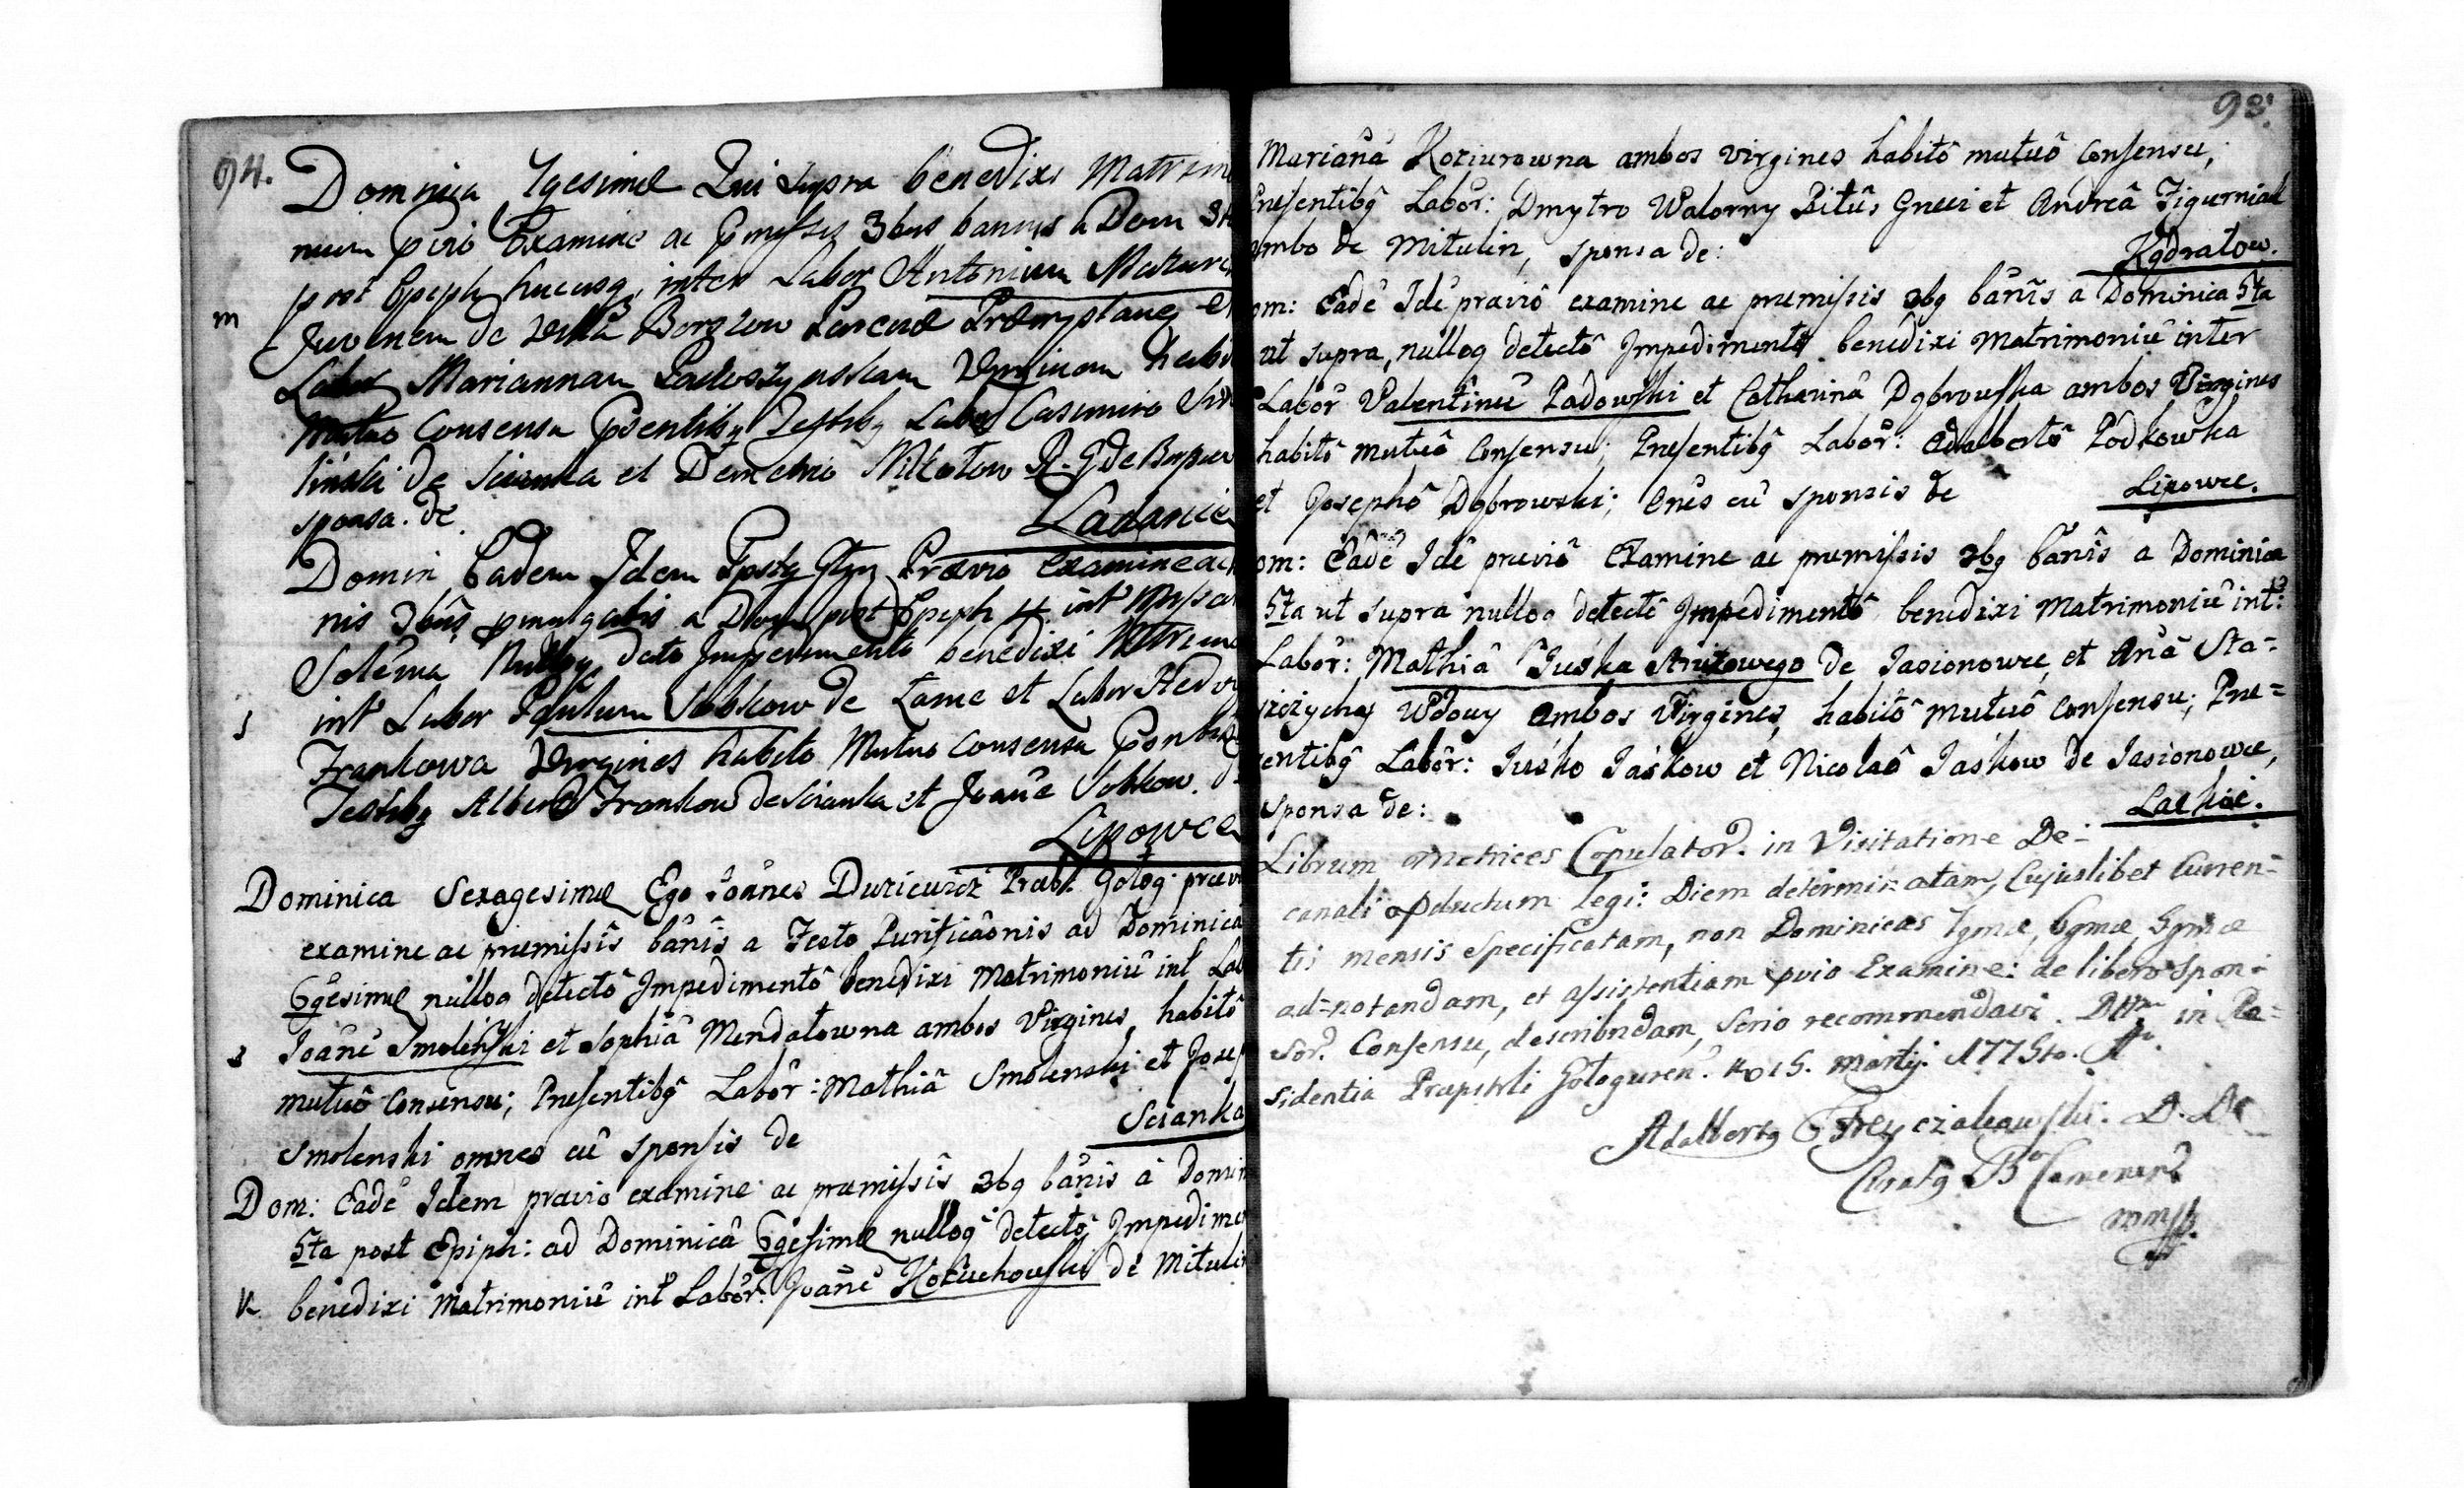 94.
Dominica 7gesimæ Qui supra benedixi Matrimo
nium pvio Examine ac pmissis 3bus bannis a Dom 3t
post Epiph hucusq, inter Labor Antonium Mazure
m
Juvenem de Villa Borszow et
Labor Mariannam Virginem habi
Mutuo Consensu psentibq Testibq Labor Casimiro
linski de Scianka et Demetrio Nikotow R. G de
sponsa. de
Ladancie
Domin Eadem Idem Prævio examine ac
nis 3bus a Dom post Epiph 4 int
Solema Nulloq deto Impedimento benedixi Matrimo
s
int Labor Paulum Sobkow de Łame et Labor Hedvi
Frankowa Virgines habito Mutuo Consensu
Testibq Alberto Frankow de Scianka et Joañe Sobkow. d
Lipowce
Dominica Sexagesimæ Ego Joanes Duricusicz Præbr. Gołog: prævi
examine ac præmissis bânis a Festo Purificâonis ad Dominicâ
6gesimæ nulloq detectô Impedimentô benedixi Matrimoniû int Lab
s
Joânê Smolenski et Sophiâ Mendatowna ambos Virgines, habitô
mutuô Consensu; Presentibq Labôr: Mathiâ Smolenski et Jose
Smolenski omnes cû sponsis de
Scianka
Dom: Eadê Idem prævio examine ac præmissis 3bq bânis a Domin
5ta post Epiph: ad Dominicâ 6gesimæ nulloq detectô Impedime
K
benedixi Matrimoniû int Labôr: Joânê Kożuchowski de Mitulin
98.
Marianâ Koziurowna ambos virgines habitô mutuô Consensu;
Presentibq Labôr: Dmytro Walorny Ritûs Græci et Andreâ Figurniak
ambo de Mitulin, sponsa de:
Kądratow.
om: Eadê Idê præviô examine ac præmissis 3bq bânis a Dominica 5ta
ut supra, nulloq detectô Impedimentô benedixi Matrimoniû inter
Labôr Valentinû Radowski et Catharinâ Dąbrowska ambos Virgines
habitô mutuô Consensu; Presentibq Labôr: Adalbertô Podkowka
et Josephô Dąbrowski; Ones cû sponsis de
Lipowce.
om: Eadê Idê præviô Examine ac præmissis 3bq bânis a Dominica
5ta ut supra nulloq detectô Impedimentô benedixi Matrimoniû int:
Labôr: Mathiâ Juśka de Jasionowce, et Anâ Sta=
Wdowy ambos Virgines, habitô mutuô Consensu; Pre=
sentibq Labôr: Juśko Jaśkow et Nicolaô Jaśkow de Jasionowce,
sponsa de:
Lackie.
Librum Metrices Copulator. in Visitatione De=
canali legi: Diem determinatam, Cujuslibet Curren=
tis mensis specificatam, non Dominicas 7gmæ, 6gmæ, 5gmæ
ad=notandam, et assistentiam pvio Examine: de libero Spon=
sor. Consensu, describndam, serio recommendavi. in Re=
sidentia Gołoguren. 15. Martij. 1775to.
Adalbertq
Curatq
mmpp.